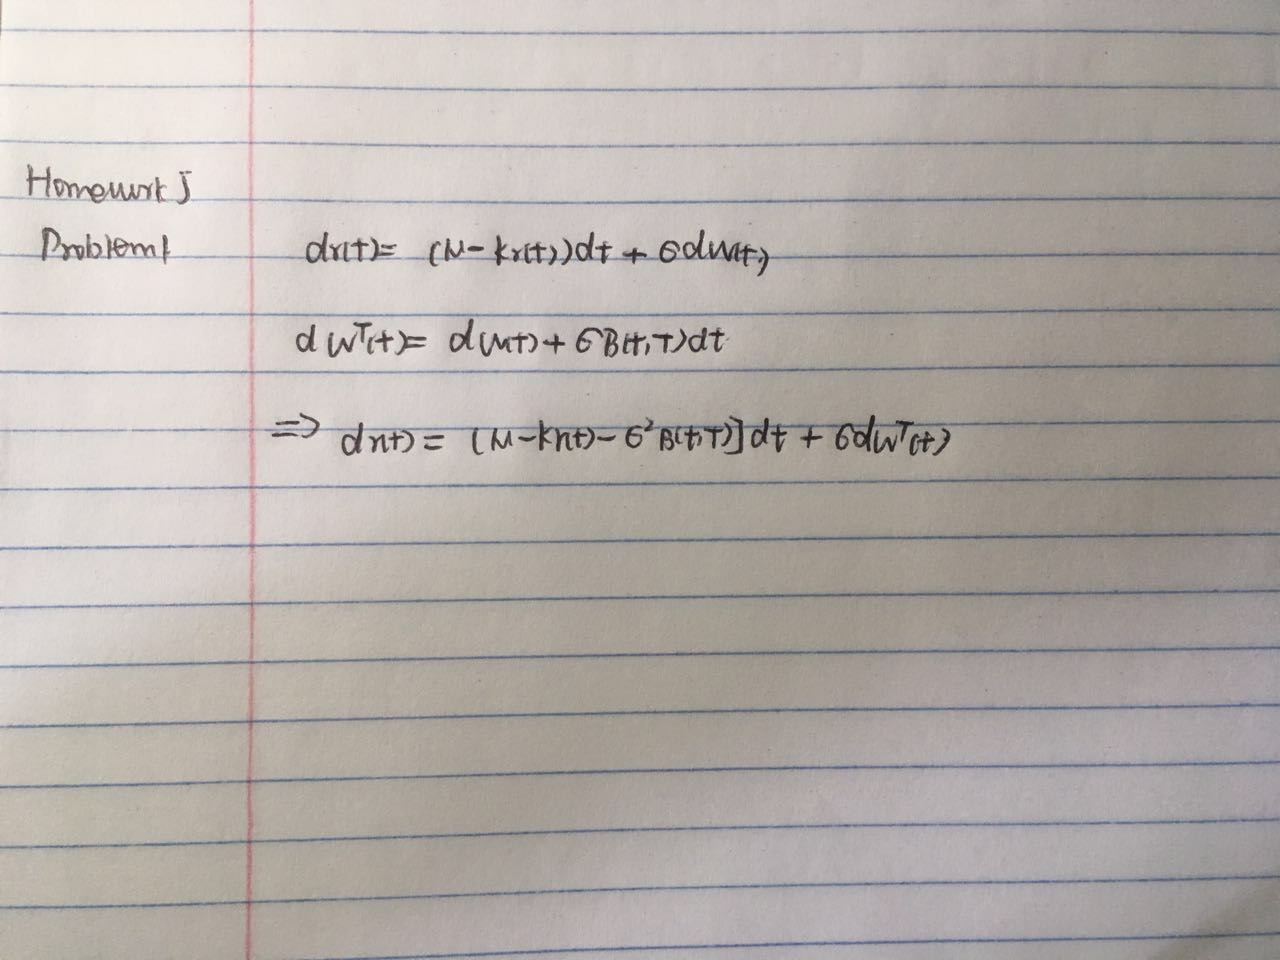 Homework 5
Problem 1 dr(t) = (μ - kr(t))dt + σdW(t)
dWᵀ(t) = dW(t) + σB(t,T)dt
⇒ dr(t) = (μ - kr(t) - σ²B(t,T)]dt + σdWᵀ(t)